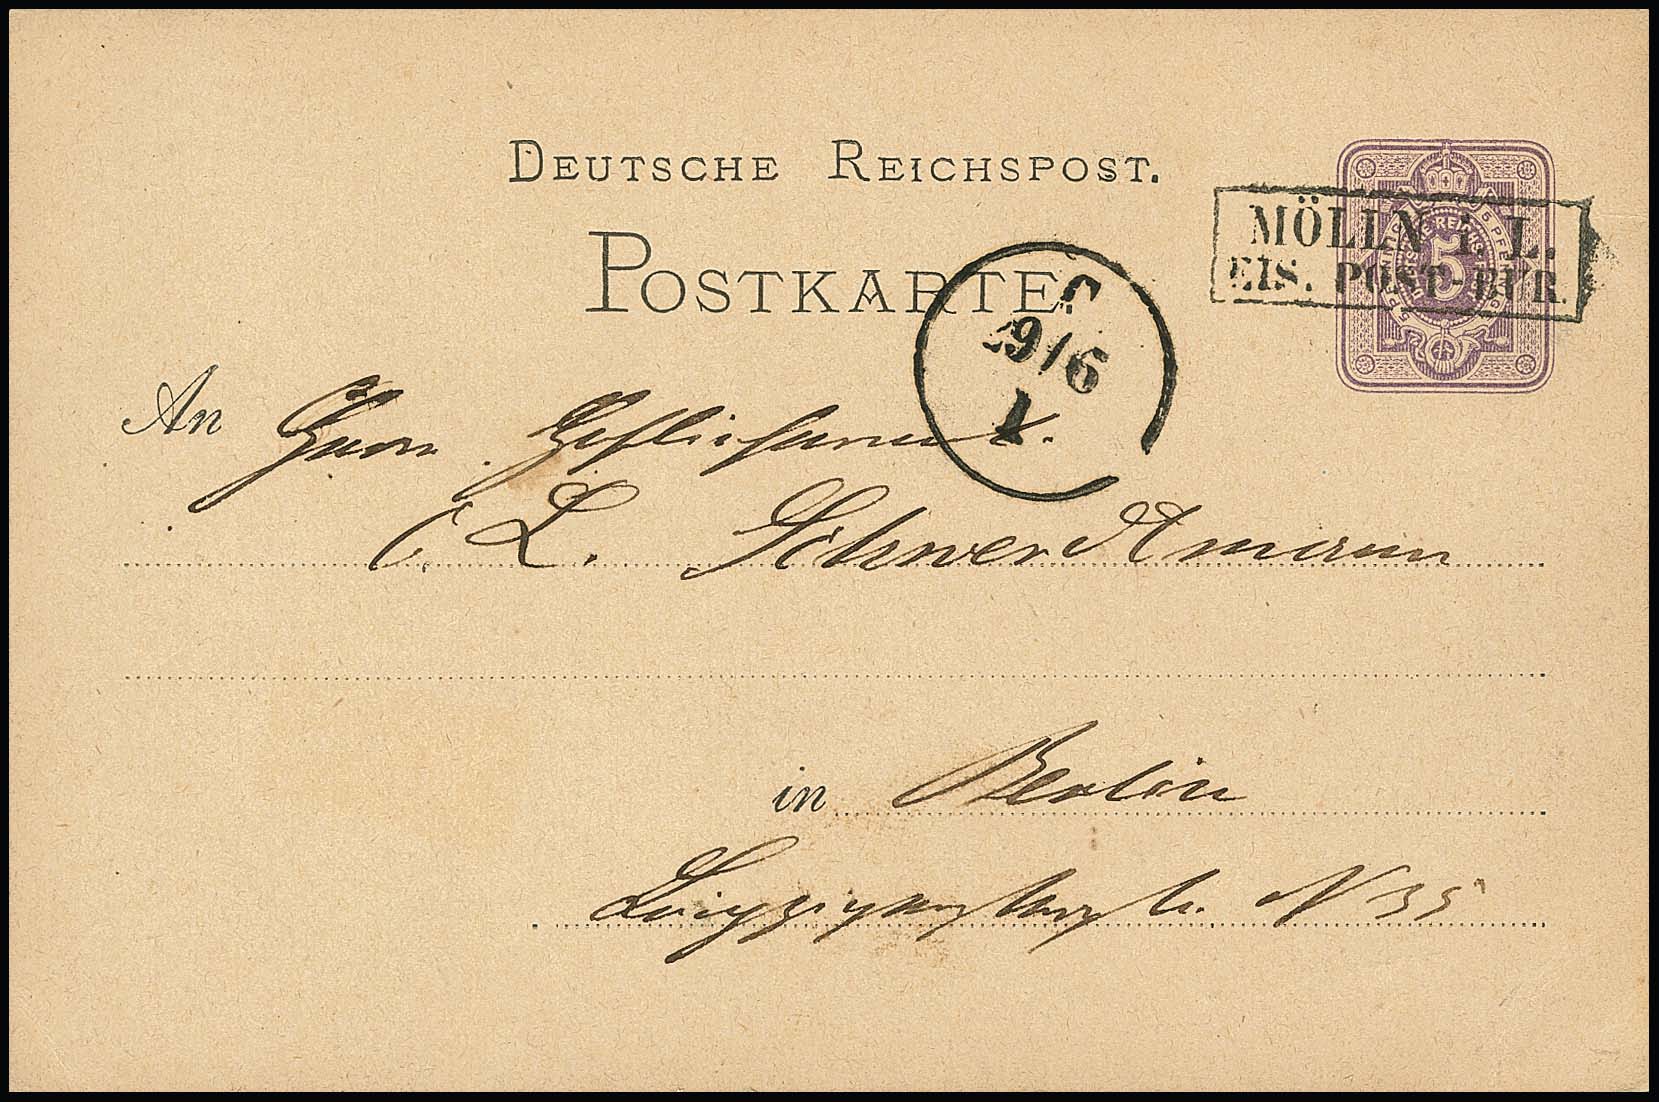 DEUTSCHE REICHSPOST.
POSTKARTE
MÖLLN i. L.
EIS. POST-BUR.
5
C
29/6
1
An Herrn
C. L. Schwerdtmann
in Berlin
Leipzigerstraße N 35